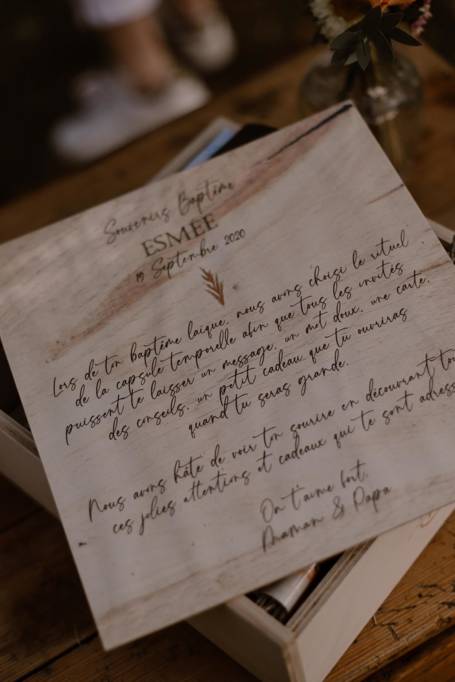 Souvenirs Baptême
ESMÉE
19 Septembre 2020
Lors de ton baptême laïque, nous avons choisi le rituel
de la capsule temporelle afin que tous les invités
puissent te laisser un message, un mot doux, une carte,
des conseils, un petit cadeau que tu ouvriras
quand tu seras grande.
Nous avons hâte de voir ton sourire en découvrant
ces jolies attentions et cadeaux qui te sont
On t'aime fort,
Maman & Papa